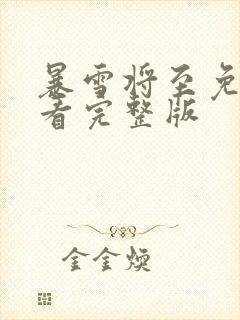 暴雪将至免
看完整版
金金煐